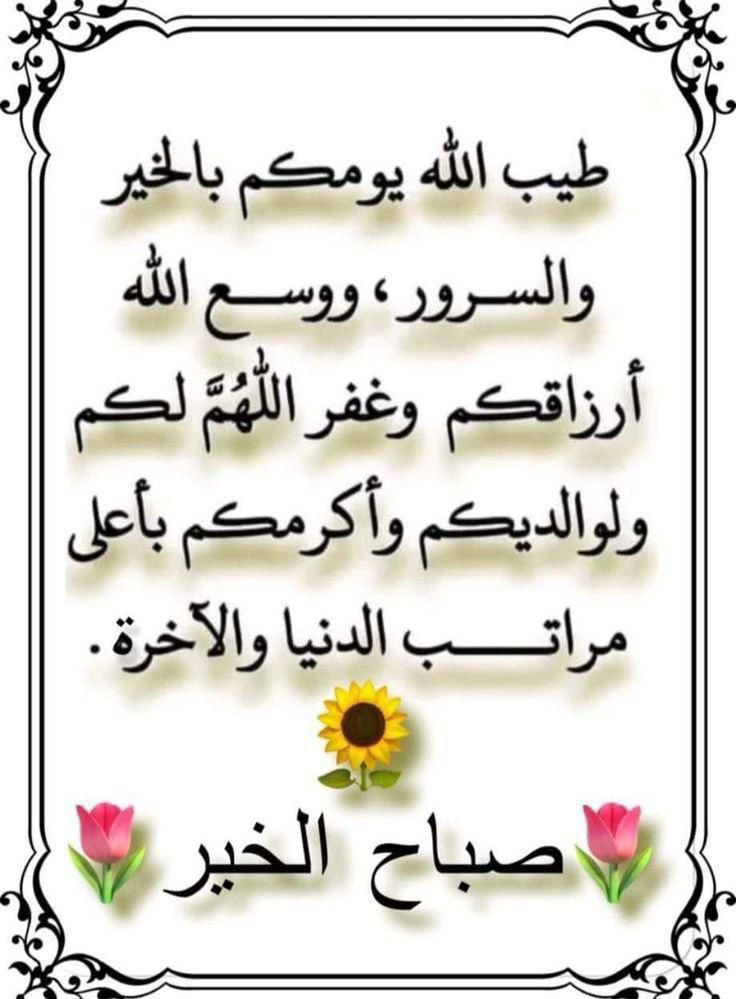 طيب الله يومكم بالخير
والسرور ، ووسع الله
أرزاقكم وغفر اللهُمَّ لكم
ولوالديكم وأكرمكم بأعلى
مراتب الدنيا والآخرة .
صباح الخير